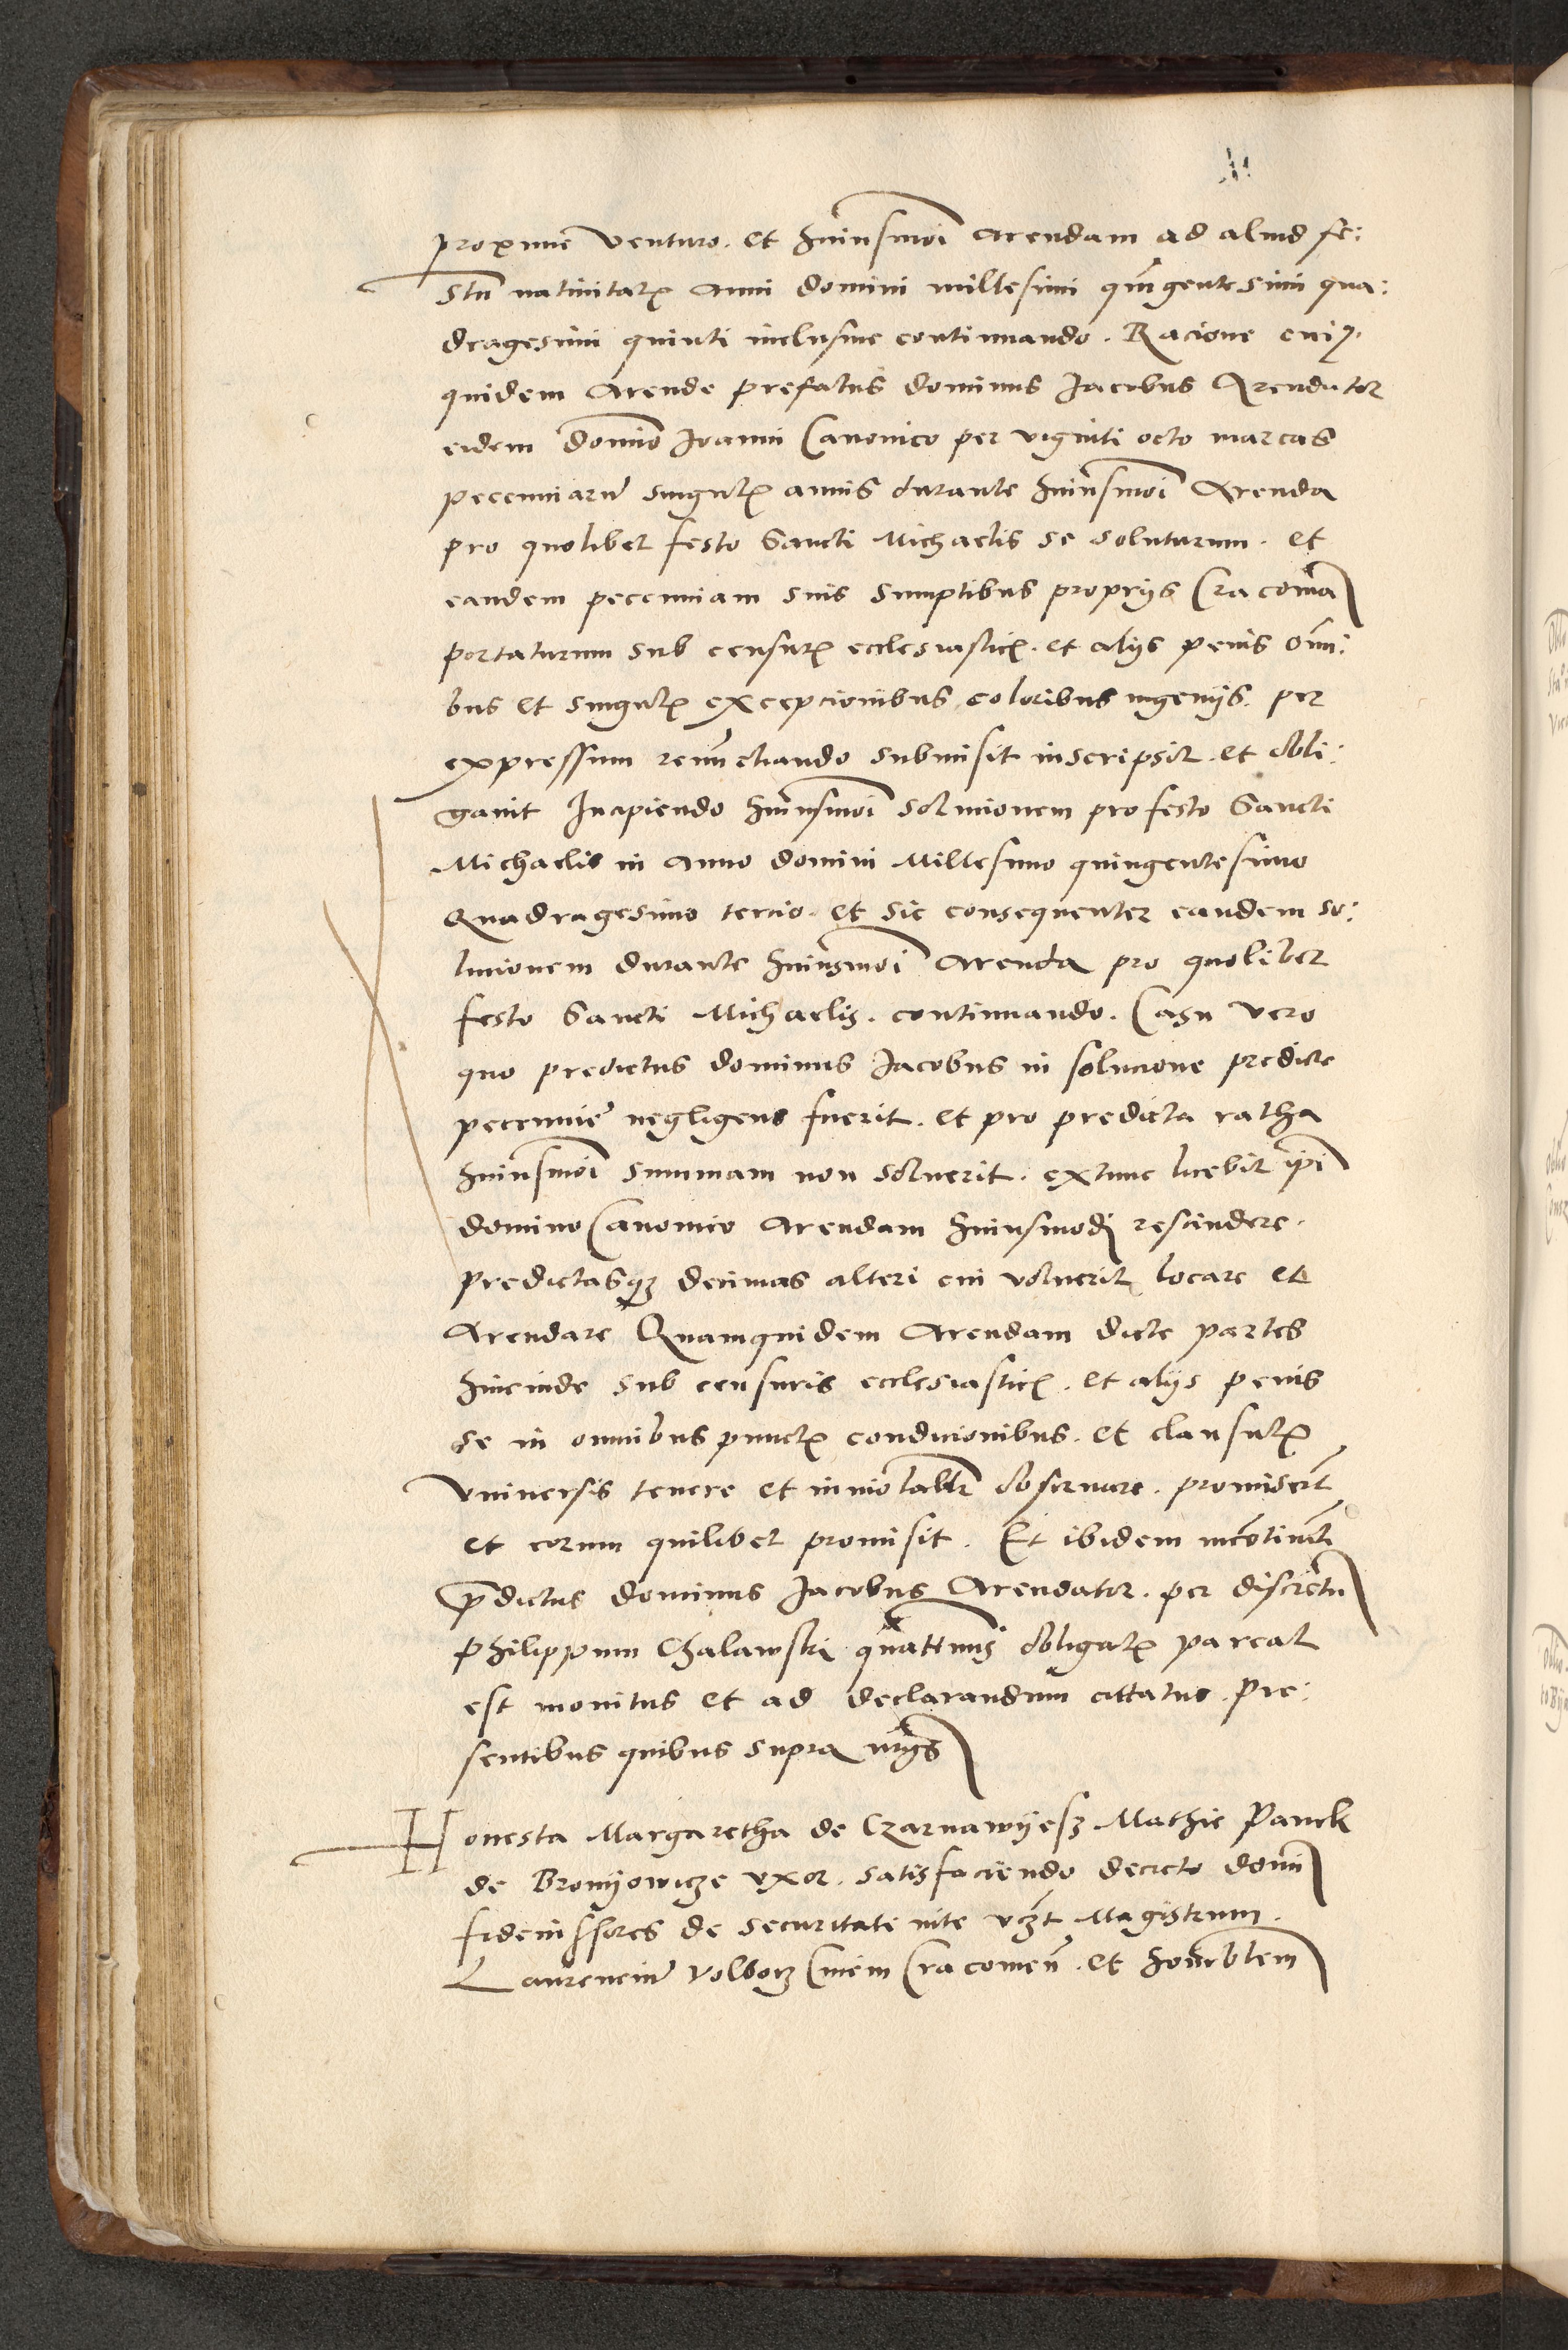 proxime venturo. et huiusmoi Arendam ad aliud fe:
stu natiuitatꝭ Anni domini millesimi quigentesimi qua:
dragesimi quinti inclusiue continuando. Racione cuiꝰ
quidem Arende prefatus dominus Jacobus Arendator
eidem domino Joanni Canonico per viginti octo marcas
pecuniarū singulꝭ annis durante huiusmoi Arenda
pro quolibet festo Sancti Michaelis se soluturum. et
eandem pecuniam suis sumptibus proprijs Cracouia
portaturum sub censurꝭ ecclesiasticꝭ. et alijs penis omi:
bus et singulꝭ excepcionibus coloribus ingenijs. per
expressum renuciando submisit inscripsit. et obli:
gauit Incipiendo huiusmoi solucionem pro festo Sancti
Michaelis in Anno domini Millesimo quingentesimo
Quadragesimo tercio. et sic consequenter eandem so:
lucionem durante huiusmoi Arenda pro quolibet
festo Sancti Michaelis. continuando. Casu vero
quo predictus dominus Jacobus in solucione predicte
pecunie negligens fuerit. et pro predicta ratha
huiusmoi summam non soluerit. extunc licebit ipi
domino Canonico Arendam huiusmodi rescindere.
predictasqꝫ decimas alteri cui voluerit locare et
Arendare Quamquidem Arendam dicte partes
hincinde sub censuris ecclesiasticꝭ. et alijs penis
se in omnibus punctꝭ condicionibus. et clausulꝭ
vniuersis tenere et inuiolabilr obseruare. promiserūt
et eorum quilibet promisit. Et ibidem incotineti
p̄dictus dominus Jacobus Arendator. per discretu
Philippum Chalawski quattinus obligatꝭ pareat
est monitus et ad declarandum cittatus. pre:
sentibus quibus supra
Honesta Margaretha de Czarnawyesz Mathie Panek
de Bronyowicze vxor. satisfaciendo decreto domi
fideiussores de securitate vite vcꝫt Magistrum.
Laurenciu Volborz Ciuem Cracouien. et honorablem